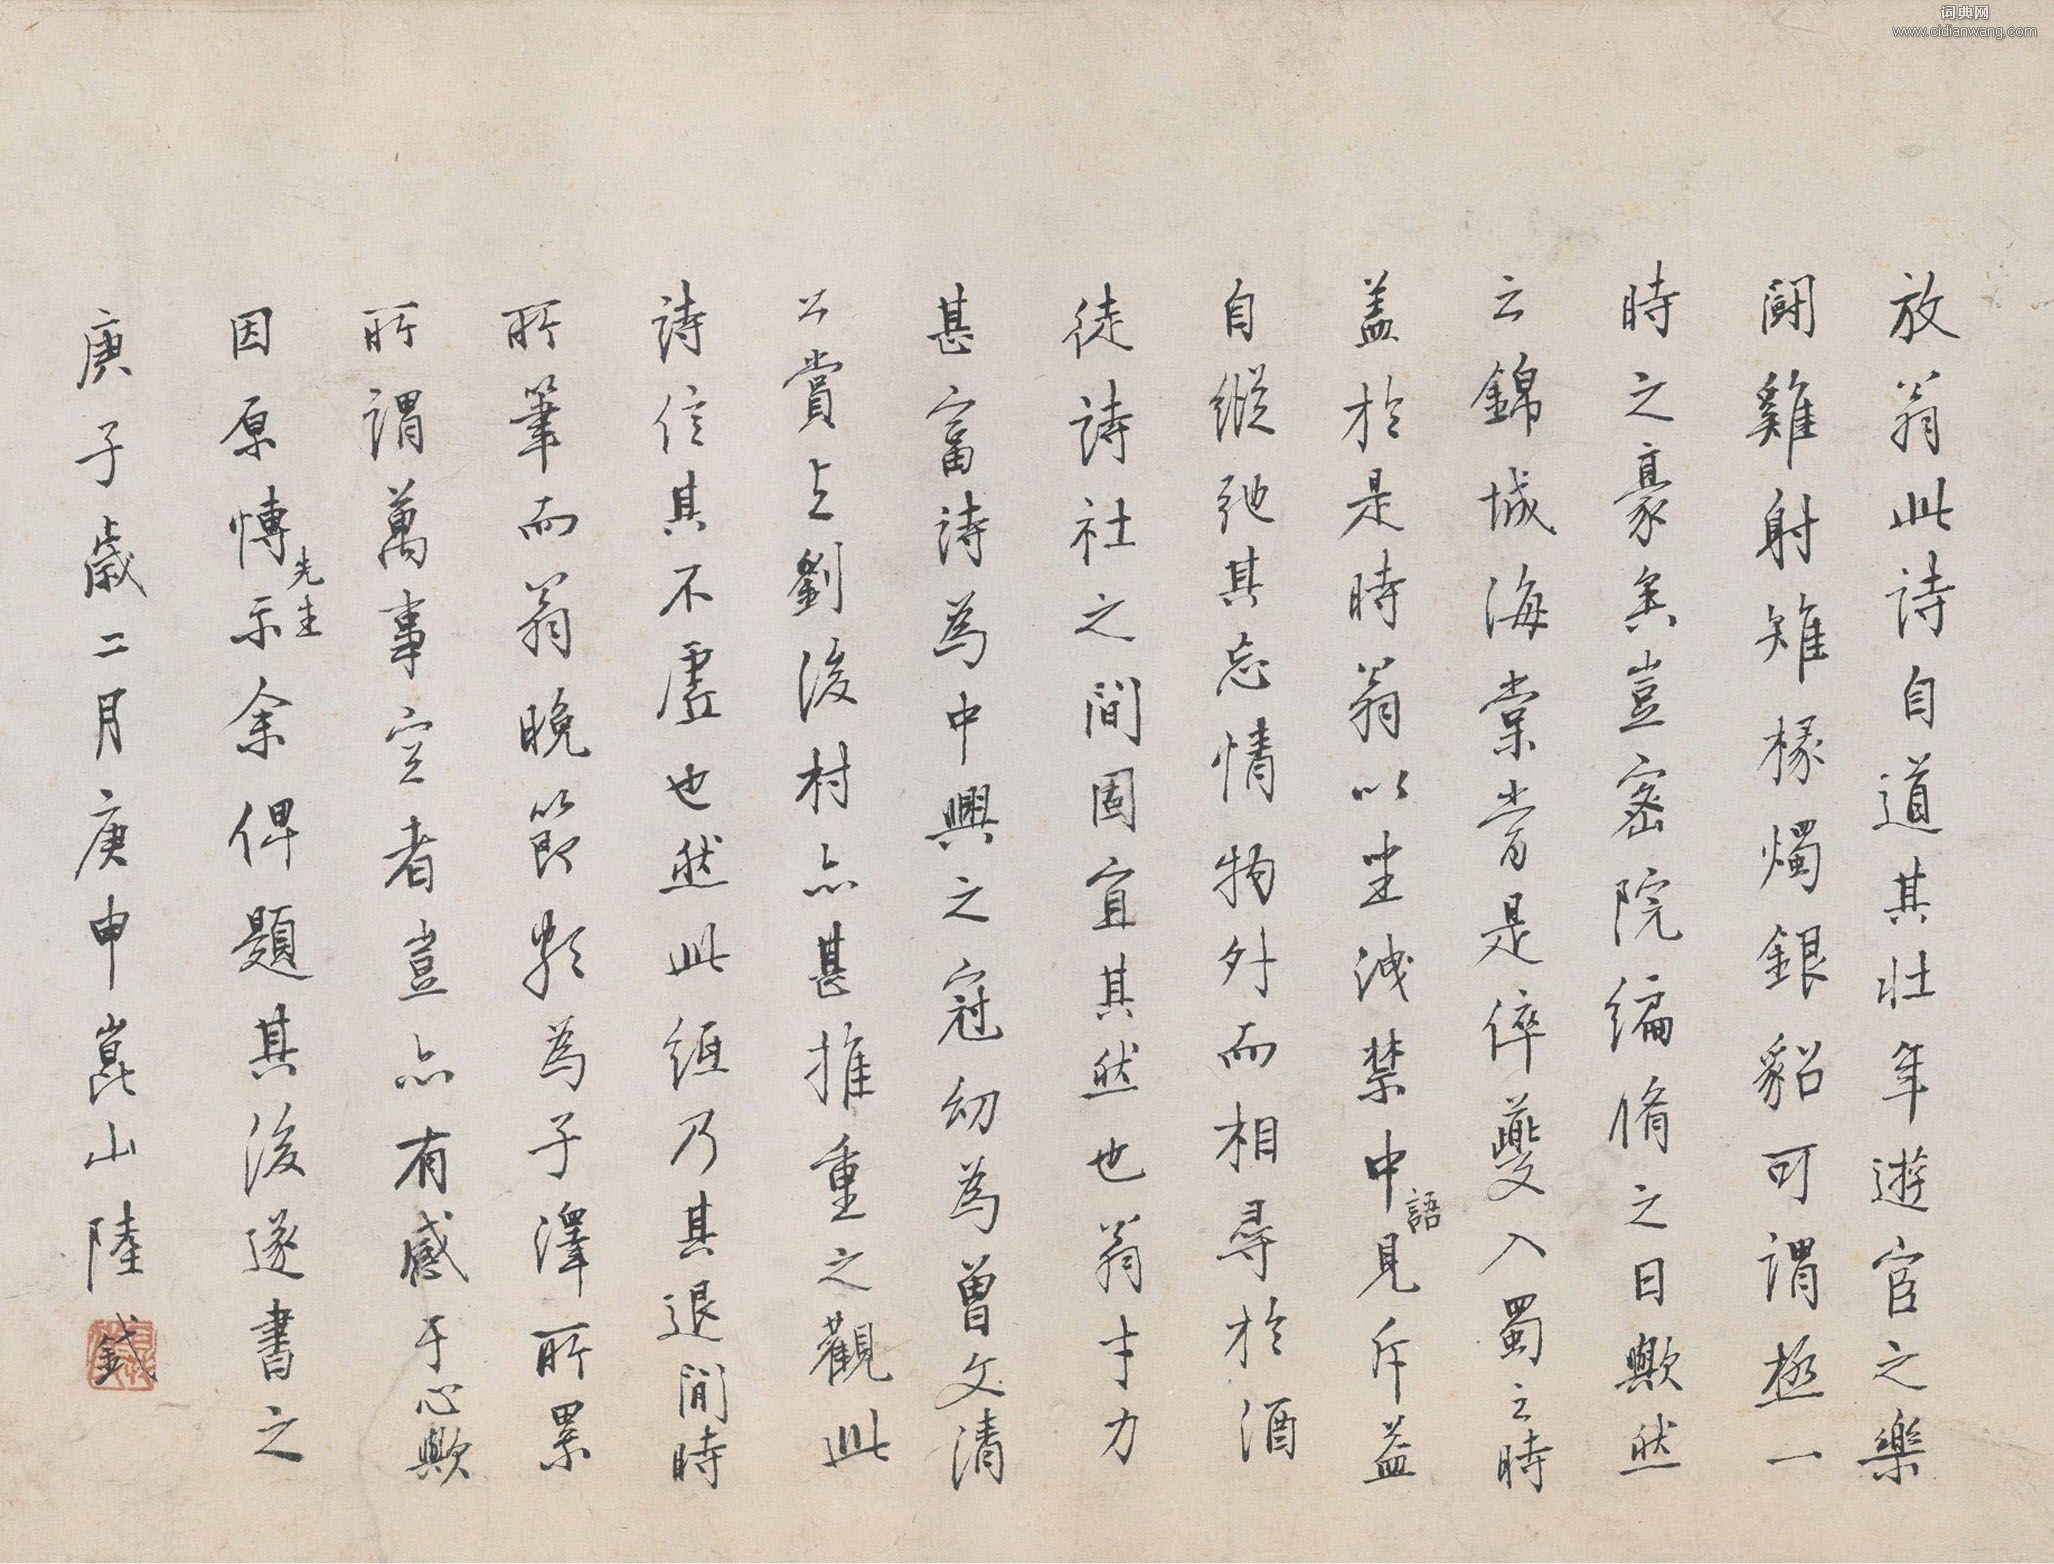 词典网
www.cidianwang.com
放翁此詩自道其壯年遊宦之樂
鬬雞射雉椽燭銀貂可謂極一
時之豪矣豈密院編脩之日歟然
云錦城海棠嘗是倅夔入蜀之時
蓋於是時翁以坐洩禁中語見斥益
自縱弛其忘情物外而相尋於酒
徒詩社之間固宜其然也翁才力
甚富詩為中興之冠幼為曾文清
公賞上劉後村亦甚推重之觀此
詩信其不虛也然此紙乃其退閒時
所筆而翁晚節為子澤所累
所謂萬事空者豈亦有感于心歟
因原博先生示余俾題其後遂書之
庚子歲二月庚申崑山陸釴